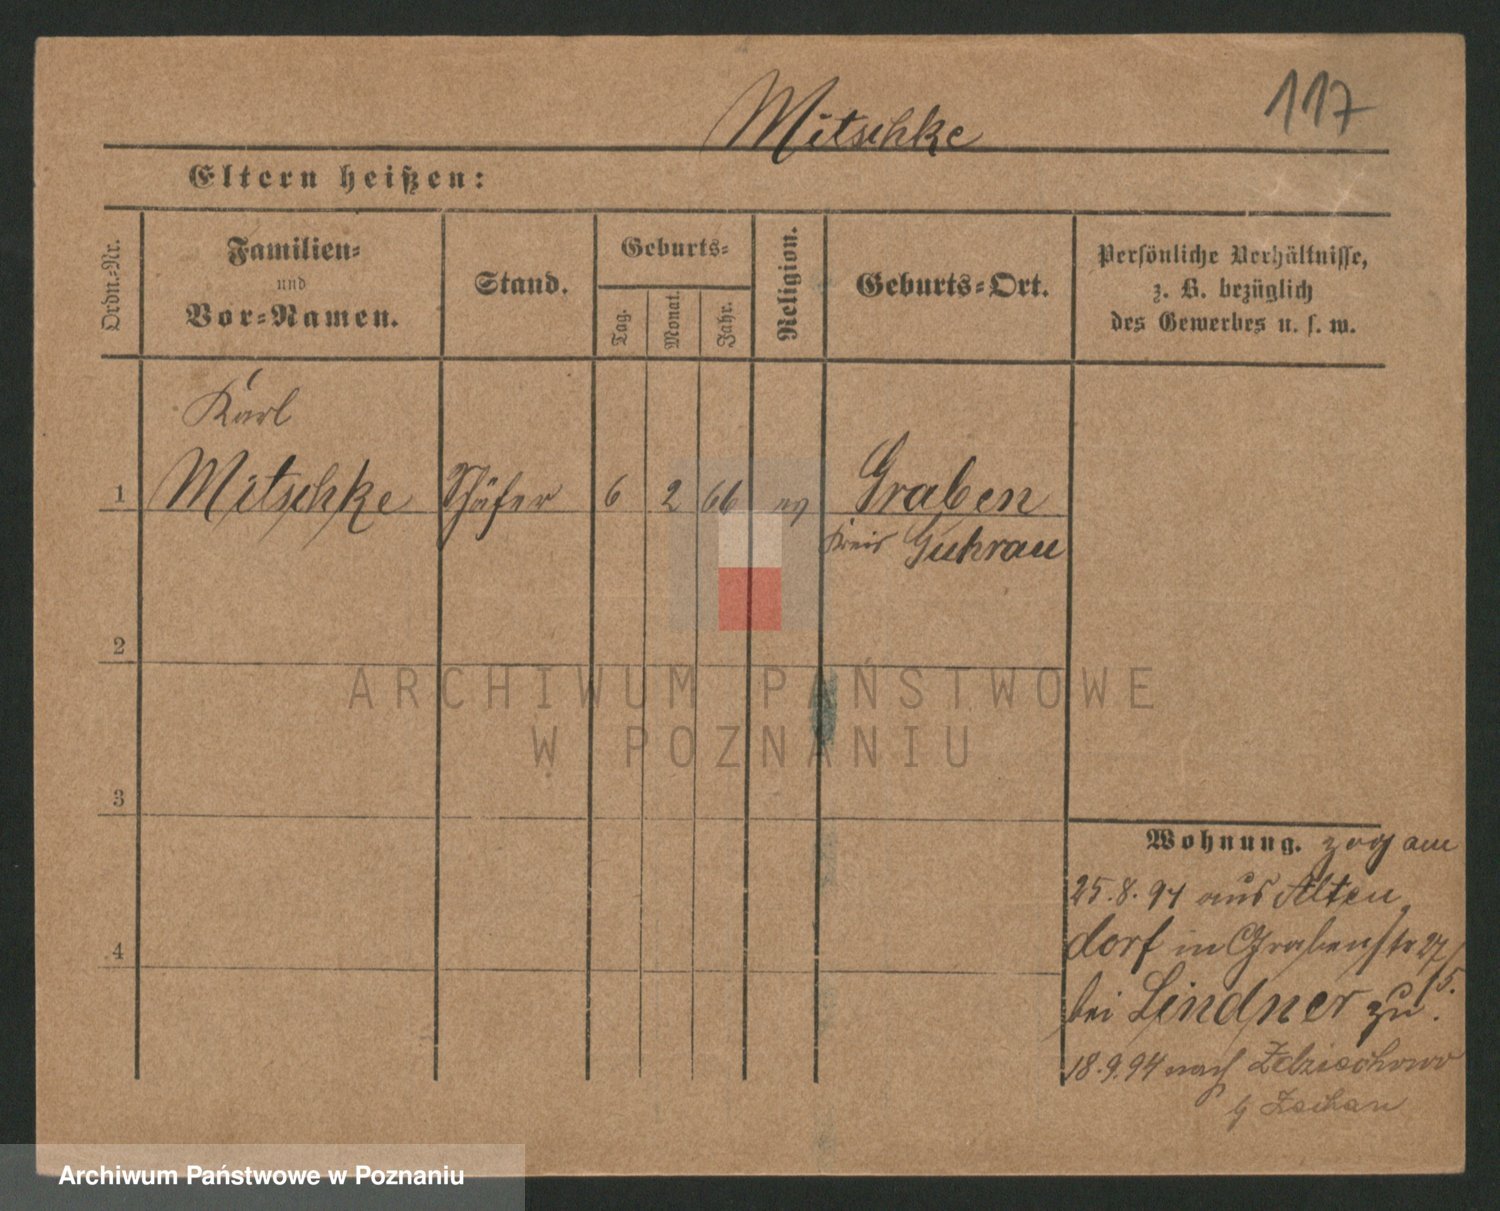 117
Mitschke
Eltern heißen:
Ordn.-Nr.
Familien-
und
Vor-Namen.
Stand.
Geburts-
Tag.
Monat.
Jahr.
Religion.
Geburts-Ort.
Persönliche Verhältnisse,
z. B. bezüglich
des Gewerbes u. s. w.
Karl
1 Mitschke Schäfer 6 2 66 ev Graben
Kreis Guhrau
2
ARCHIWUM PAŃSTWOWE
W POZNANIU
3
Wohnung. zog am
25.8.94 aus Alten
dorf in Grabenstr 27/
15.
bei Lindner zu.
18.9.94 nach
4
Archiwum Państwowe w Poznaniu